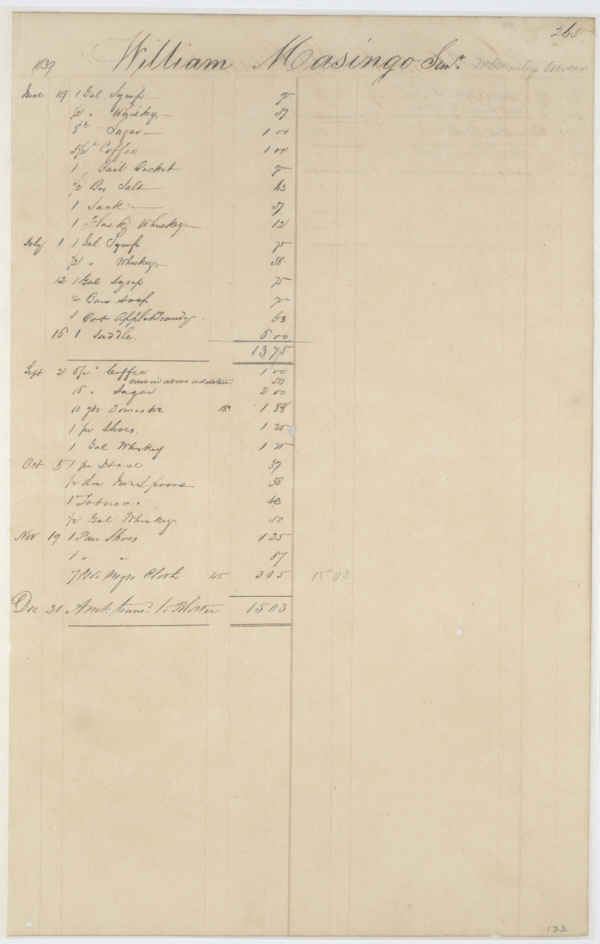 265
1837 William Masingo Senr.
June 19 1 Gal Syrup 75
1/2 " Whiskey 37
8 lb Sugar 1 00
5 1/2 lb Coffee 1 00
1 Tail Bucket 75
1/2 Bus Salt 63
1 Sack 37
1 Flask Whiskey 12
July 1 1 Gal Syrup 75
1/2 " Whiskey 38
12 1 Gal Syrup 75
4 Bars Soap 75
1 Apple Brandy 63
16 1 Saddle. 6 00
13 75
Sept 2 Coffee 1 00
error in above addition 50
" Sugar 2 00
10 yds Domestic 1 88
1 pr Shoes. 1 25
1 Gal Whiskey 1 25
Oct 5 1 pr Hose 37
1/2 Spoons 38
Tobacco
1/2 Gal Whiskey 50
Nov 19 1 Pair Shoes 1 25
1 " " 87
45 3 15 15 03
Dec 31 Amt. 15 03
133